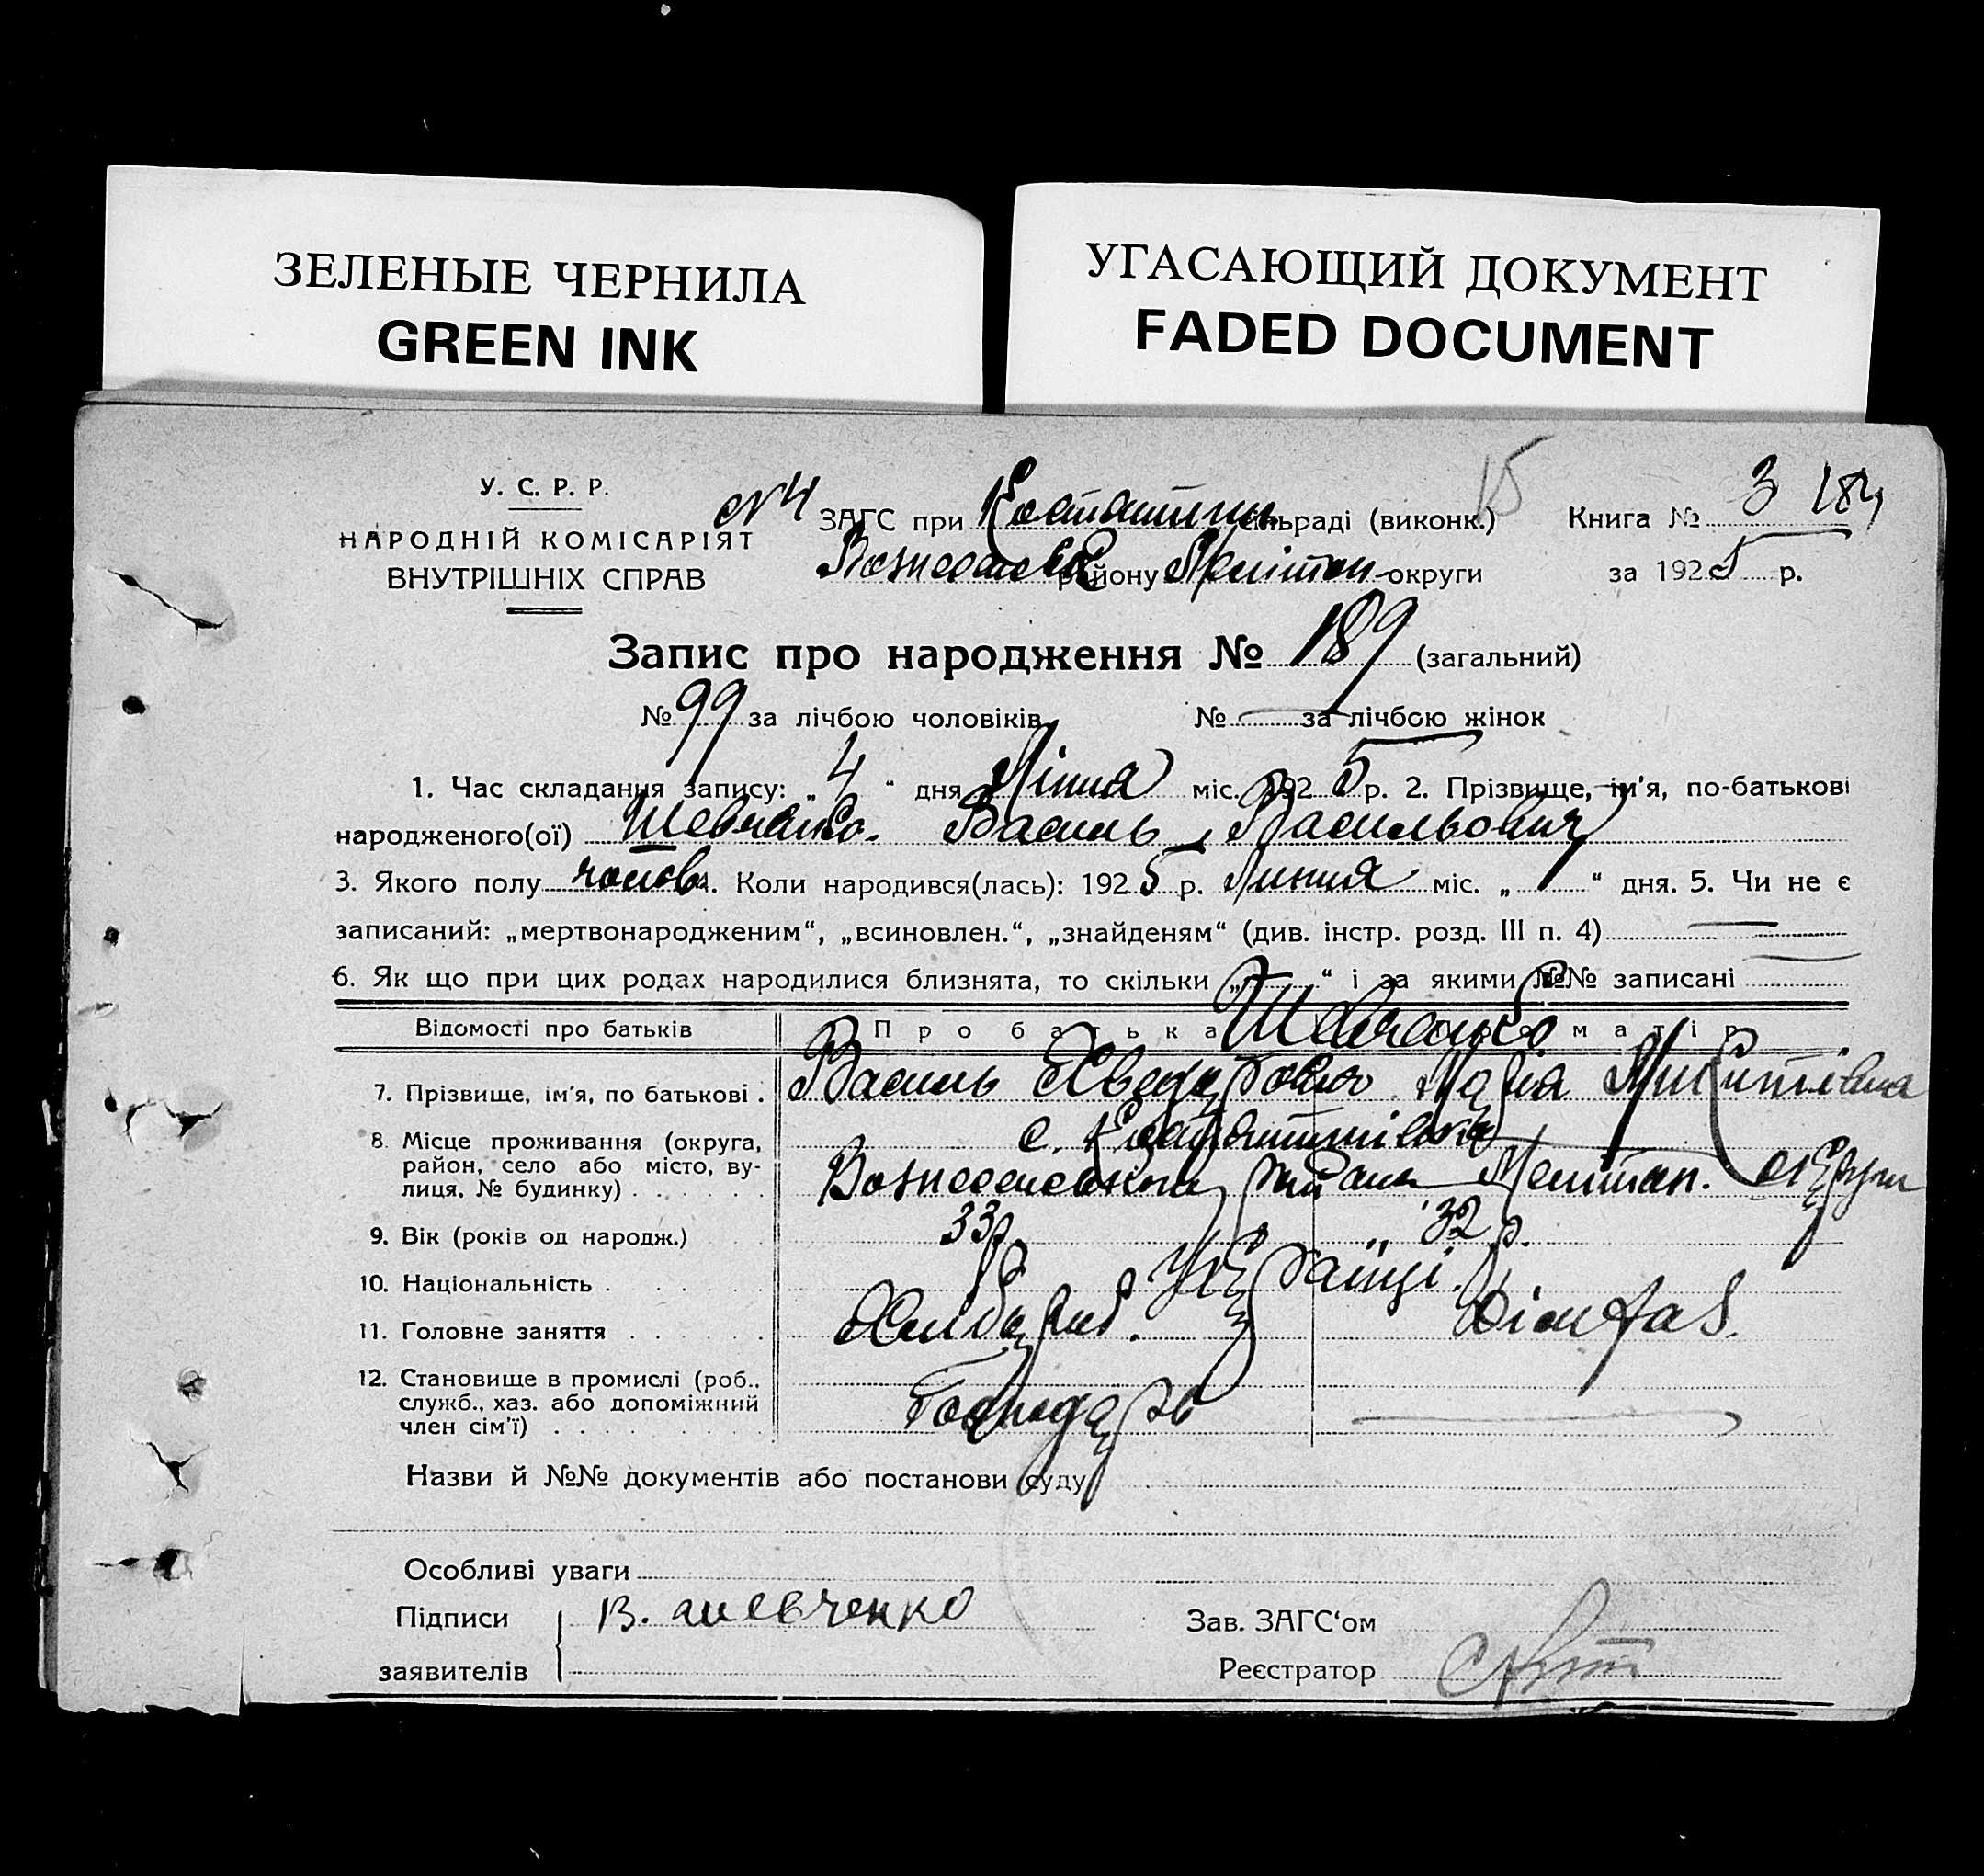 ЗЕЛЕНЫЕ ЧЕРНИЛА
GREEN INK
УГАСАЮЩИЙ ДОКУМЕНТ
FADED DOCUMENT
У. С. Р. Р.
НАРОДНІЙ КОМІСАРІЯТ
ВНУТРІШНІХ СПРАВ
№4 ЗАГС при сільраді (виконк.) 15
району Мелітоп. округи
Книга № 3
за 1925 р.
Запис про народження № 189 (загальний)
№ 99 за лічбою чоловіків № за лічбою жінок
1. Час складання запису: „ 4 “ дня Липня міс. 1925 р. 2. Прізвище, ім'я, по-батькові
народженого(ої) Шевченко Василь Васильович
3. Якого полу чолов. Коли народився(лась): 1925 р. Липня міс. „ 1 “ дня. 5. Чи не є
записаний: „мертвонародженим“, „всиновлен.“, „знайденям“ (див. інстр. розд. III п. 4)
6. Як що при цих родах народилися близнята, то скільки „ “ і за якими №№ записані
Відомості про батьків Про батька Про матір
Шевченко
7. Прізвище, ім'я, по батькові . Василь Марія Микитівна
8. Місце проживання (округа,
район, село або місто, ву-
лиця, № будинку) с. Костянтинівка
Вознесенського району Мелітоп. округи
9. Вік (років од народж.) 33 р. 32 р.
10. Національність Українці
11. Головне заняття Хлібороб.
12. Становище в промислі (роб.,
служб., хаз. або допоміжний
член сім'ї) Господарь
Назви й №№ документів або постанови суду
Особливі уваги
Підписи В. Шевченко
заявителів
Зав. ЗАГС‘ом
Реєстратор